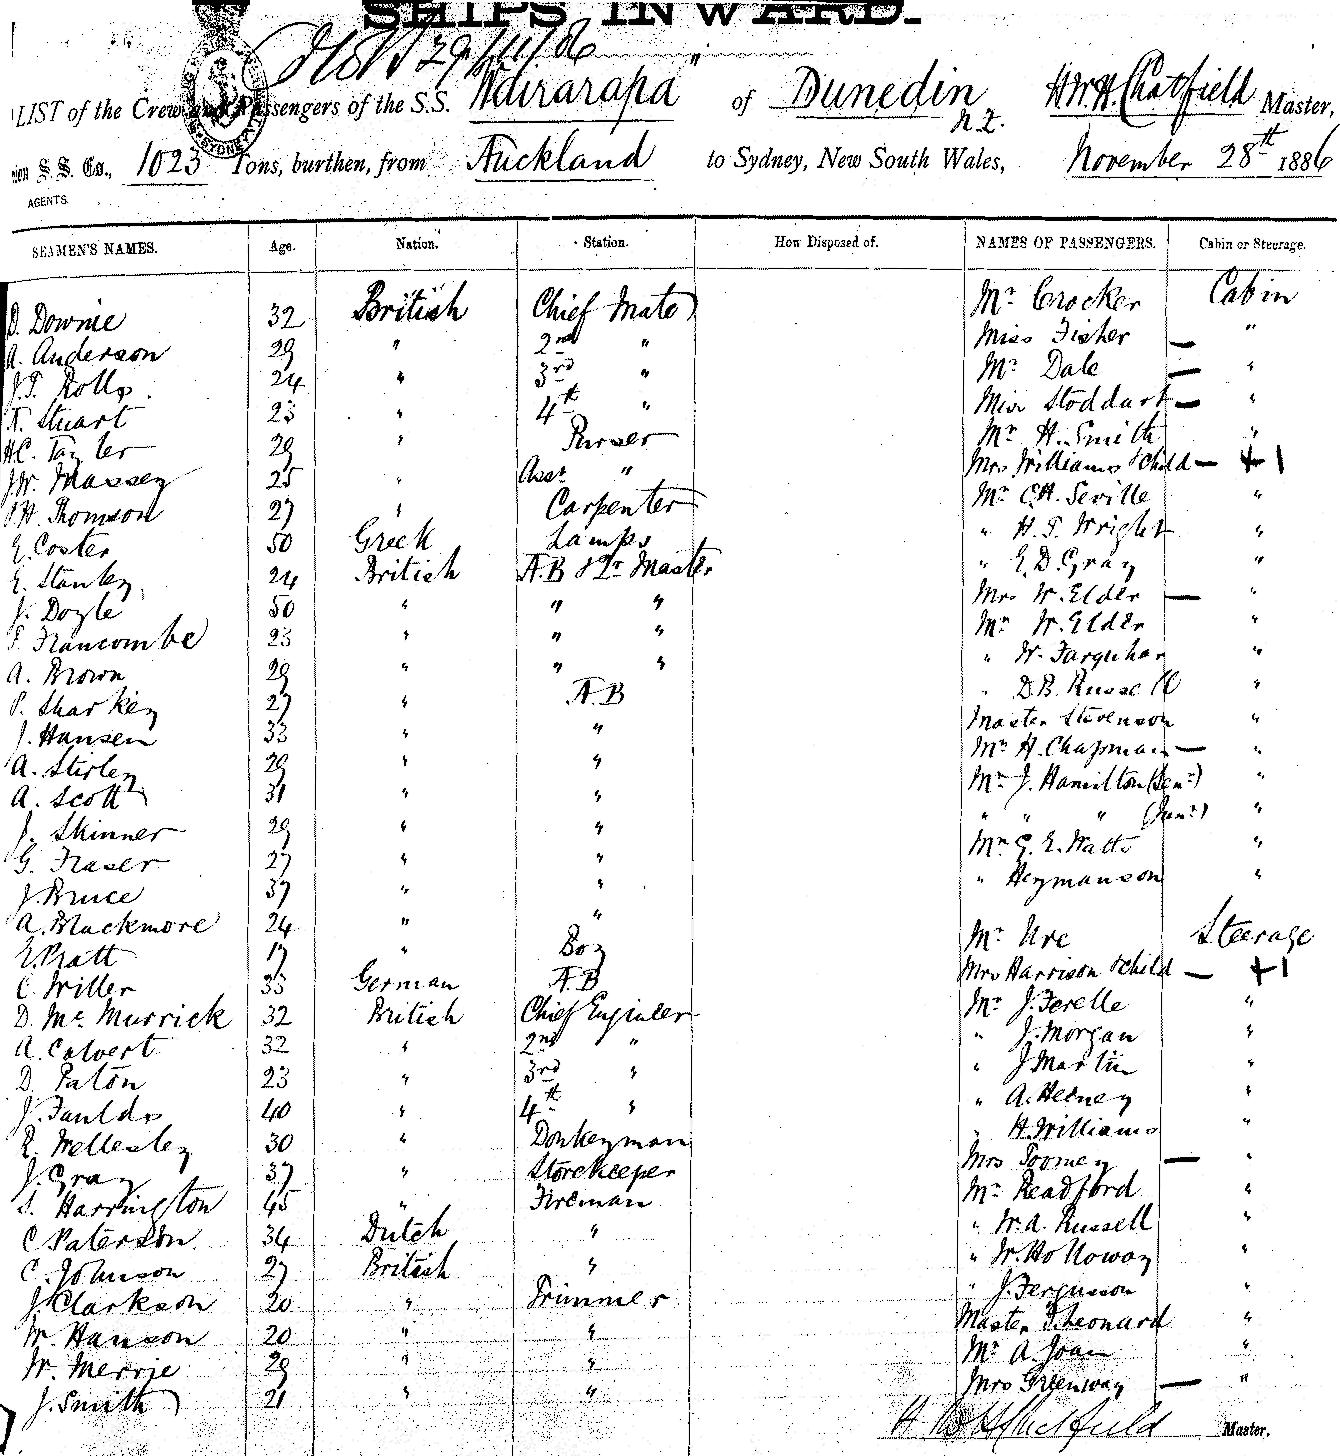 SHIPS INWARD.
29/11/86
LIST of the Crew and Passengers of the S.S. Wairarapa of Dunedin N.Z. H.W.H. Chatfield Master,
S. S. Co., 1023 Tons, burthen, from Auckland to Sydney, New South Wales, November 28th 1886
AGENTS.
SEAMEN'S NAMES. Age. Nation. Station. How Disposed of. NAMES OF PASSENGERS. Cabin or Steerage.
D. Downie 32 British Chief Mate Mr Crocker Cabin
A. Anderson 29 " 2nd " Miss Fisher — "
24 " 3rd " Mr Dale — "
Stuart 23 " 4th " Miss Stoddart — "
H.C. Tayler 29 " Purser Mr H. Smith "
J.W. Massey 25 " Asst " Mrs Williams & Child — +1
H. Thomson 27 " Carpenter Mr C.H. Seville "
E. Coster 50 Greek Lamps " H. T. Wright "
E. Stanley 24 British A.B & Qr Master " E. D. Gray "
J. Doyle 50 " " " Mrs W. Elder — "
Francombe 23 " " " Mr W. Elder "
A. Brown 29 " " " " W. Farquhar "
P. Sharkey 27 " A.B " D.B. Russell "
J. Hansen 33 " " Master Stevenson "
A. Stirley 29 " " H. Chapman — "
A. Scott 31 " " Mr J. Hamilton (Senr) "
J. Skinner 29 " " " " " (Junr) "
G. Fraser 27 " " Mr G. E. Watts "
J. Bruce 37 " " " Heymanson "
A. Blackmore 24 " "
E. Pratt 17 " Boy Mr Ure Steerage
C. Willer 35 German A.B Mrs Harrison & Child — +1
D. Mc Murrick 32 British Chief Engineer Mr J. Ferelle "
A. Calvert 32 " 2nd " " J. Morgan "
D. Paton 23 " 3rd " " J. Martin "
J. Faulds 40 " 4th " " A. Heeney "
R. Wellesley 30 " Donkeyman " H. Williams "
J. Gray 37 " Storekeeper Mrs Toomey — "
S. Harrington 45 " Fireman Mr Readford "
C Paterson 34 Dutch " " W. A. Russell "
C. Johnson 27 British " " W. Holloway "
J. Clarkson 20 " Trimmer " J. Fergusson "
W. Hanson 20 " " Master Leonard "
W. Merrie 29 " " Mr A. Joan "
J. Smith 21 " " Mrs Greenway — "
H W H Chatfield Master.